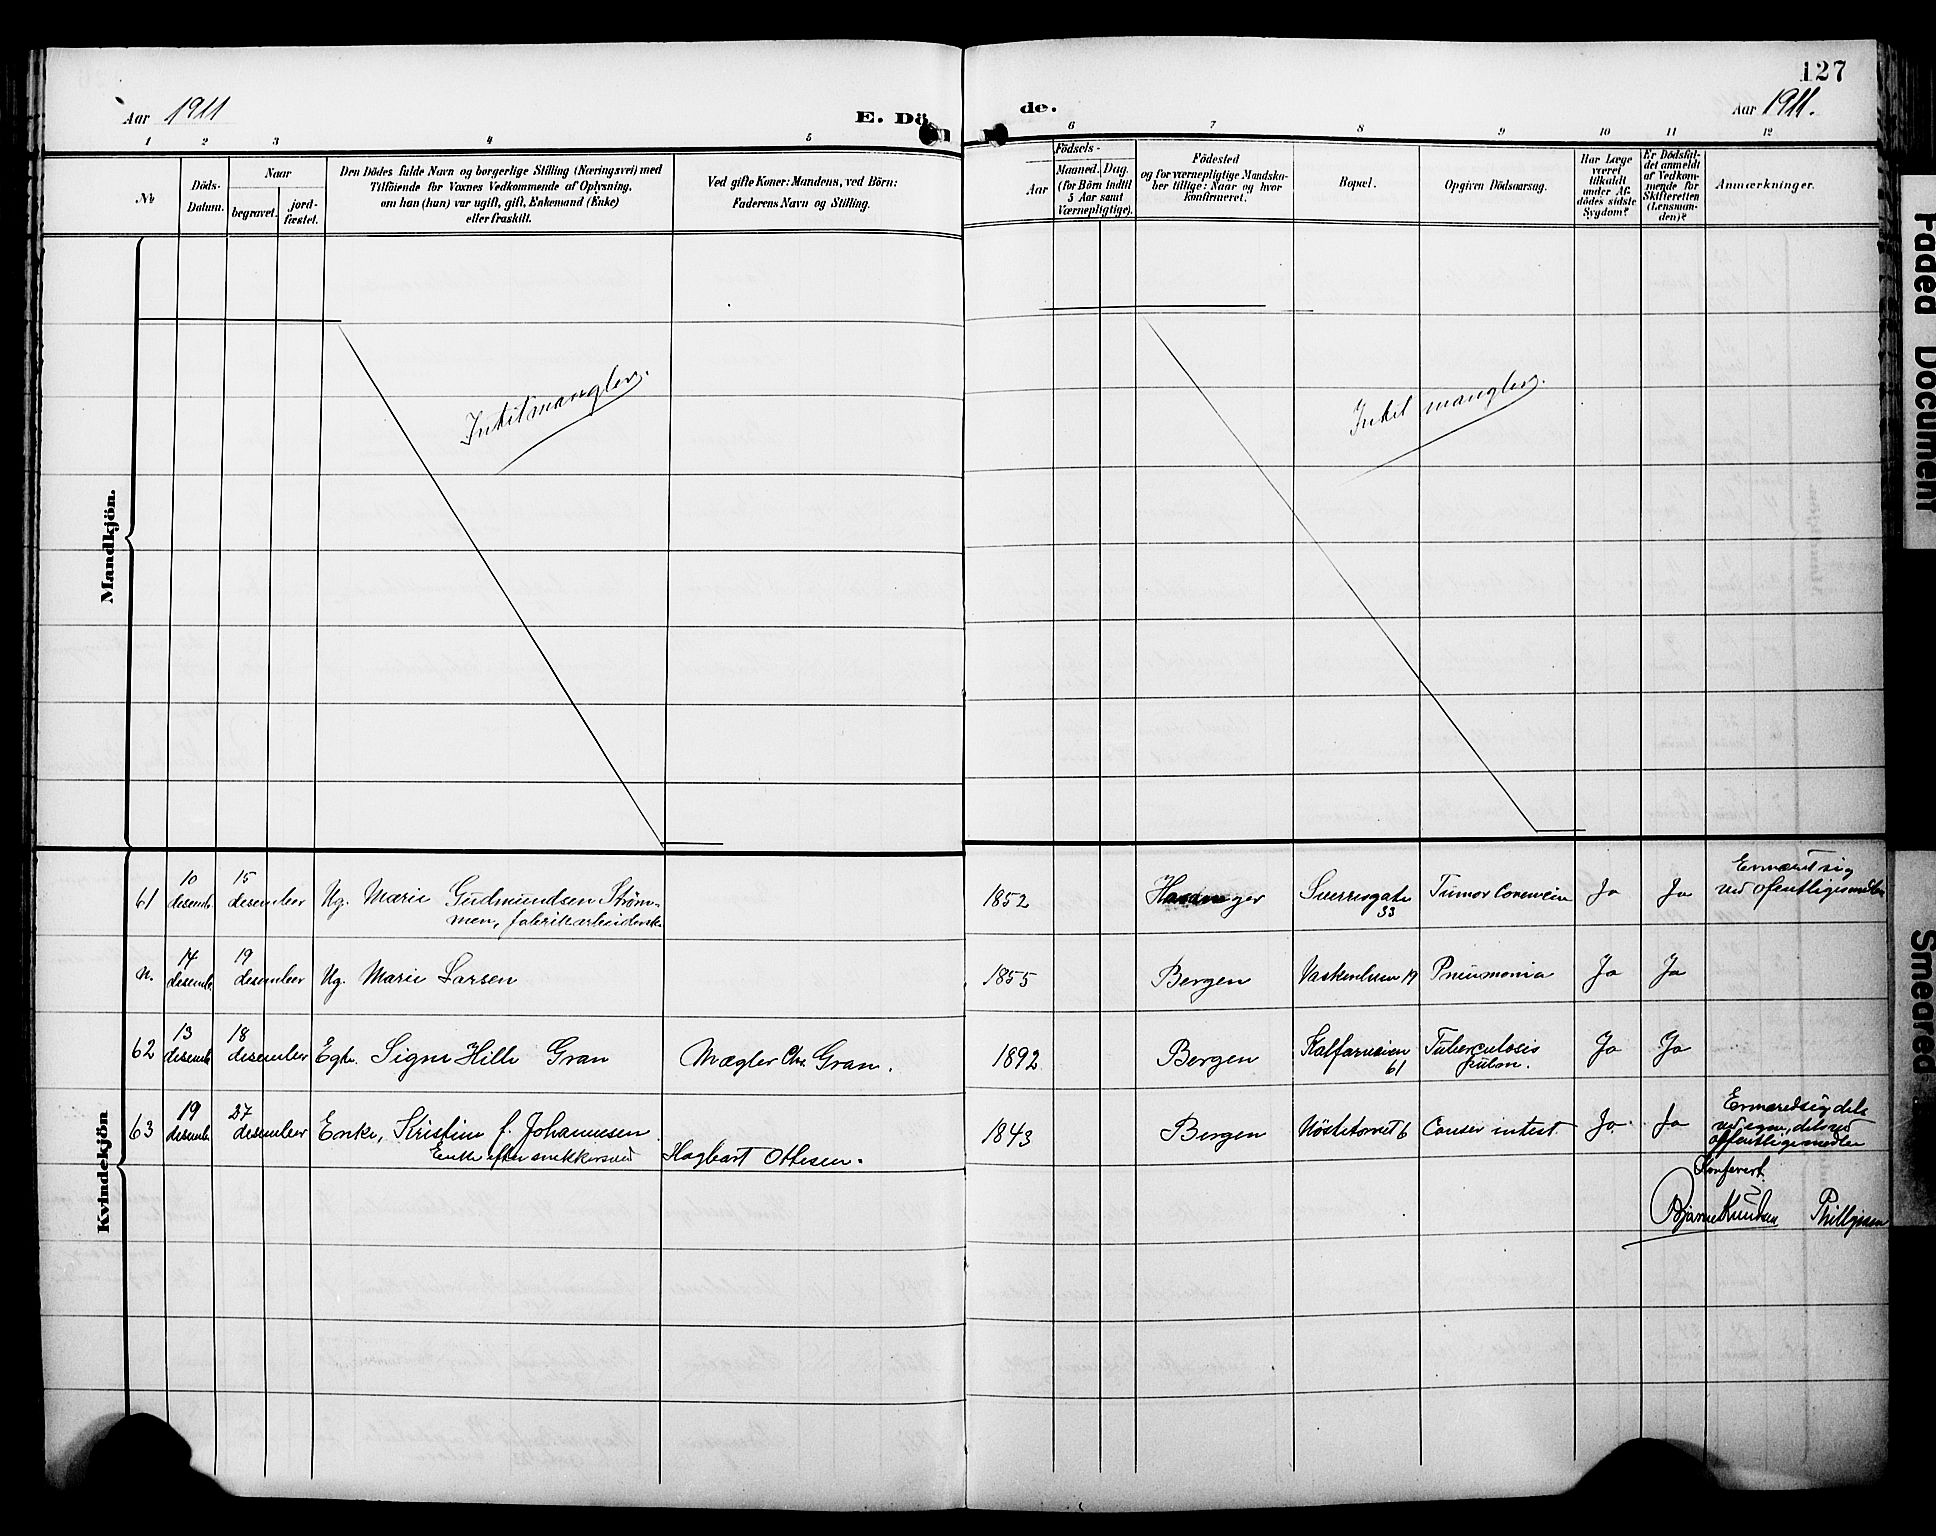 127
Aar 1911
E. Dö
de.
Aar 1911.
1 2 3 4 5 6 7 8 9 10 11 12
№
Döds-
Datum.
Naar
begravet.
jord-
fæstet.
Den Dödes fulde Navn og borgerlige Stilling (Næringsvei) med
Tilföiende for Voxnes Vedkommende af Oplysning,
om han (hun) var ugift, gift, Enkemand (Enke)
eller fraskilt.
Ved gifte Koner: Mandens, ved Börn:
Faderens Navn og Stilling.
Födsels-
Aar
Maaned. Dag.
(for Börn indtil
5 Aar samt
Værnepligtige).
Födested
og for værnepligtige Mandska-
ber tillige: Naar og hvor
konfirmeret.
Bopæl.
Opgiven Dödsaarsag.
Har Læge
været
tilkaldt
under Af-
dödes sidste
Sygdom?
Er Dödsfal-
det anmeldt
af Vedkom-
mende for
Skifteretten
(Lensman-
den)?
Anmærkninger.
Mandkjön.
Intet mangler.
Intet mangler.
Kvindekjön
61 10 desemb. 15 desember Ug. Marie Gudmundsen Ström-
men, fabrikarbeiderske
1852 Hardanger Sverresgate 33 Tumor Ja Ja
n. 14 desemb. 19 desember Ug. Marie Larsen 1855 Bergen Vaskerelven 19 Pneumonia Ja Ja
62 13 desemb. 18 desember Egte. Signe Hille Gran Mægler Chr. Gran. 1892 Bergen Kalfarveien 61 Tuberculosis pulm. Ja Ja
63 19 desemb. 27 desember Enke, Kristine f. Johannesen
Enke efter snekkersvend Hagbart Ottesen.
1843 Bergen Nöstetorvet 6 Cancer intest. Ja Ja
Konfereret
Bjarne Knudsen
Faded Document
Smeared